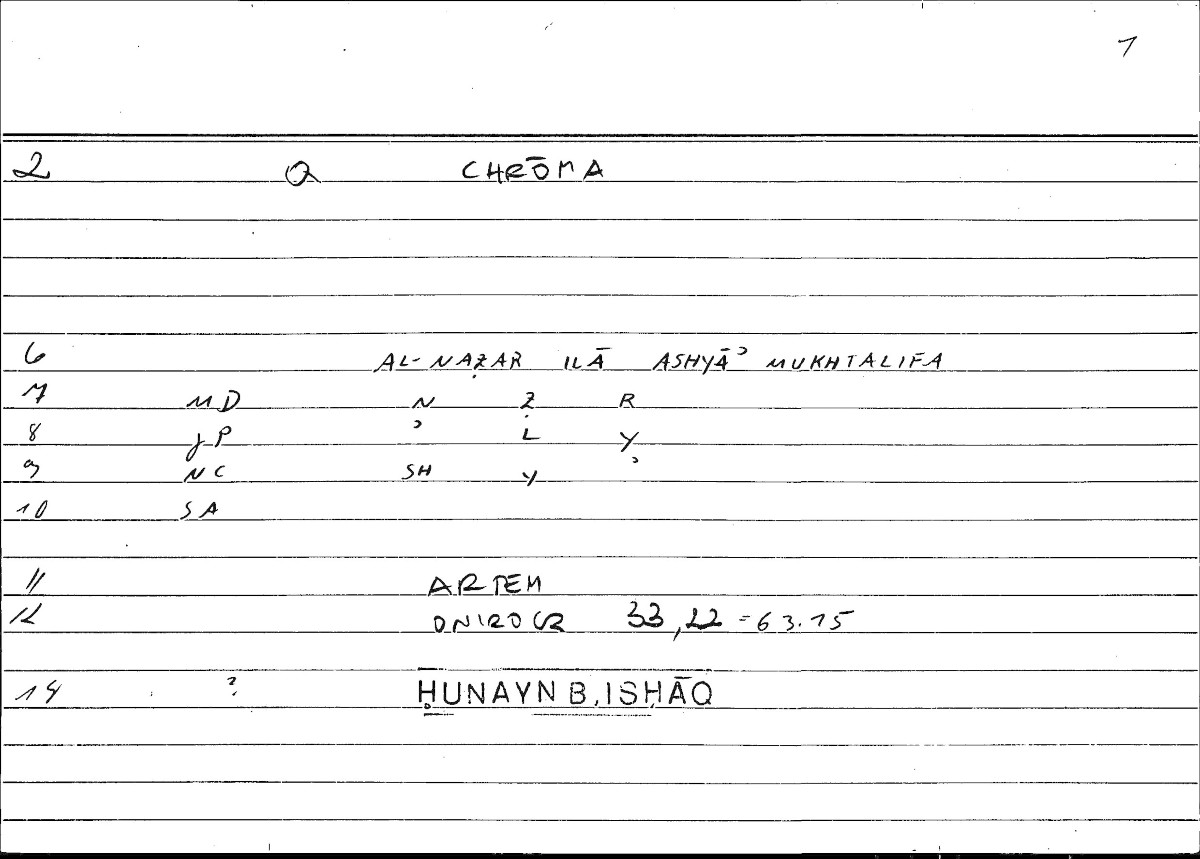 1
2 Q CHRŌMA
6 AL-NAẒAR ILĀ ASHYĀʾ MUKHTALIFA
7 MD N Ẓ R
8 JP ʾ L Y
9 NC SH Y ʾ
10 SA
11 ARTEM
12 ONIROCR 33,22 = 63.15
14 ? ḤUNAYN B. ISḤĀQ